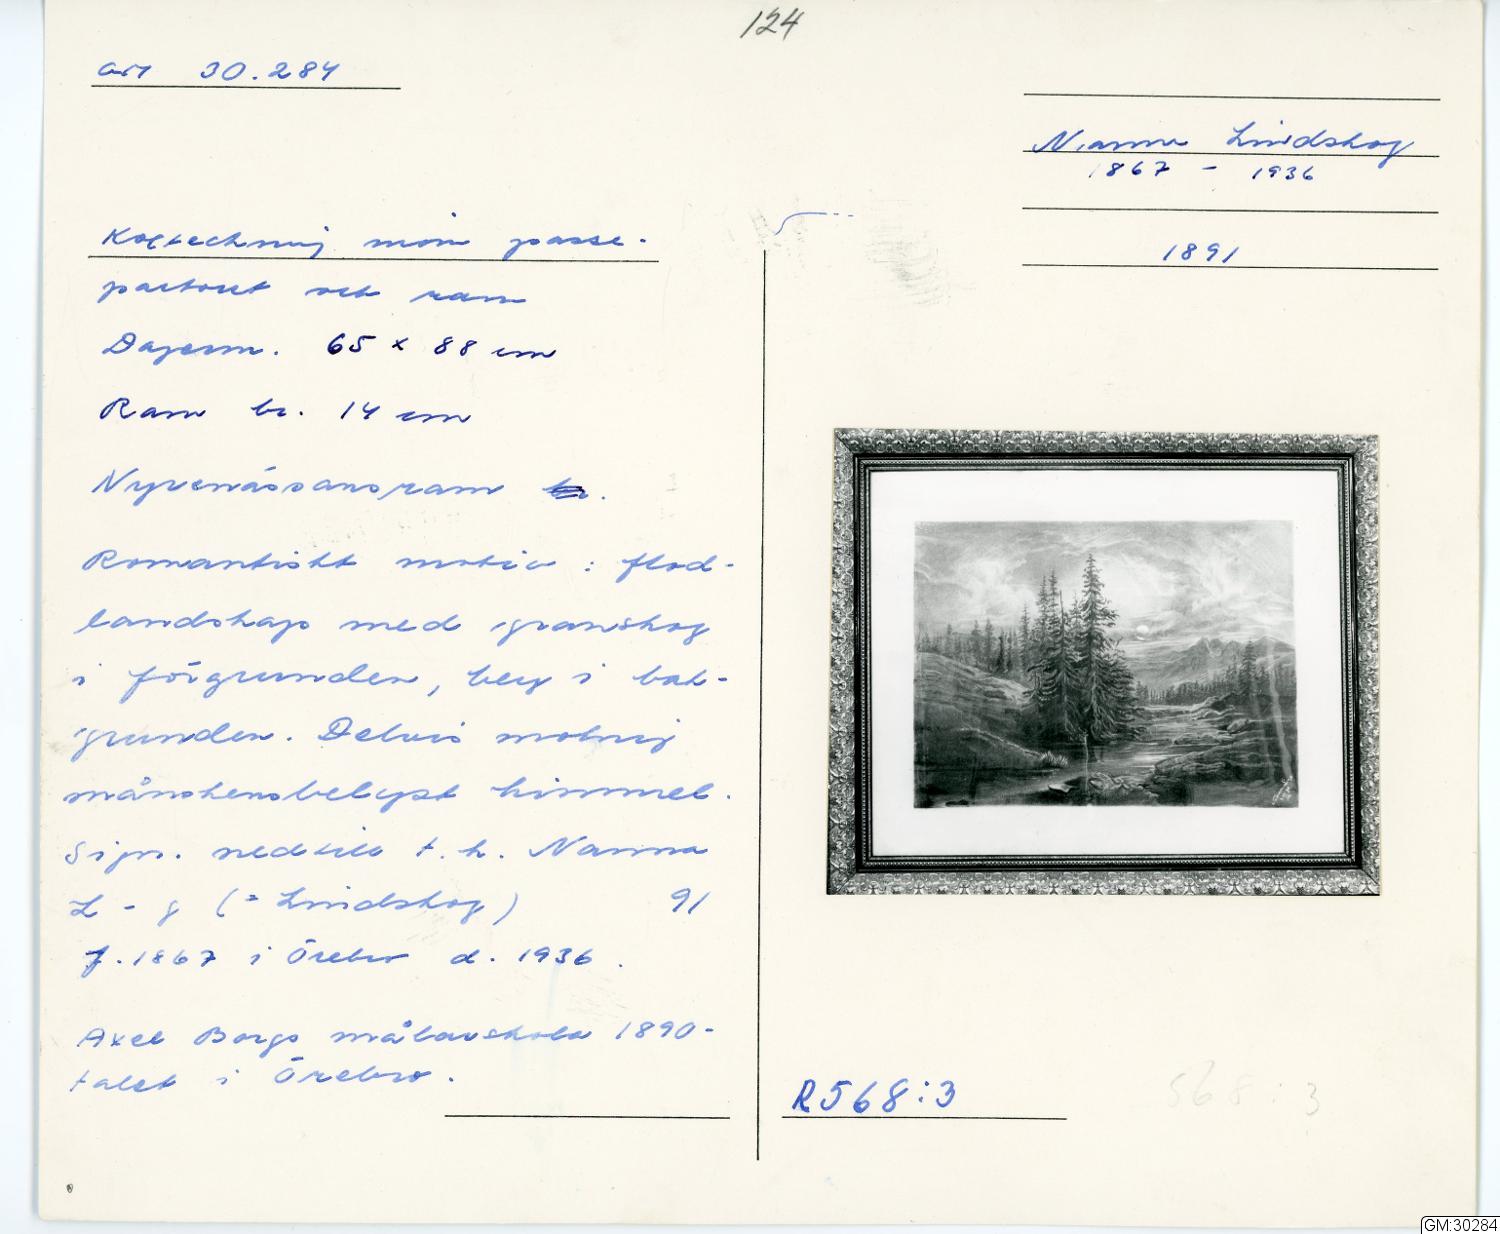 124
art 30.284
Nanna Lindskog
1867 - 1936
1891
Kolteckning inom passe-
partout och ram
Dagerm. 65 x 88 cm
Ram br. 14 cm
Nyrenässansram
Romantiskt motiv : flod-
landskap med granskog
i förgrunden, berg i bak-
grunden. Delvis molnig
månskensbelyst himmel.
Sign. nedtill t.h. Nanna
L - g (= Lindskog) 91
f. 1867 i Örebro d. 1936.
Axel Borgs målarskola 1890-
talet i Örebro.
R568:3
568:3
GM:30284